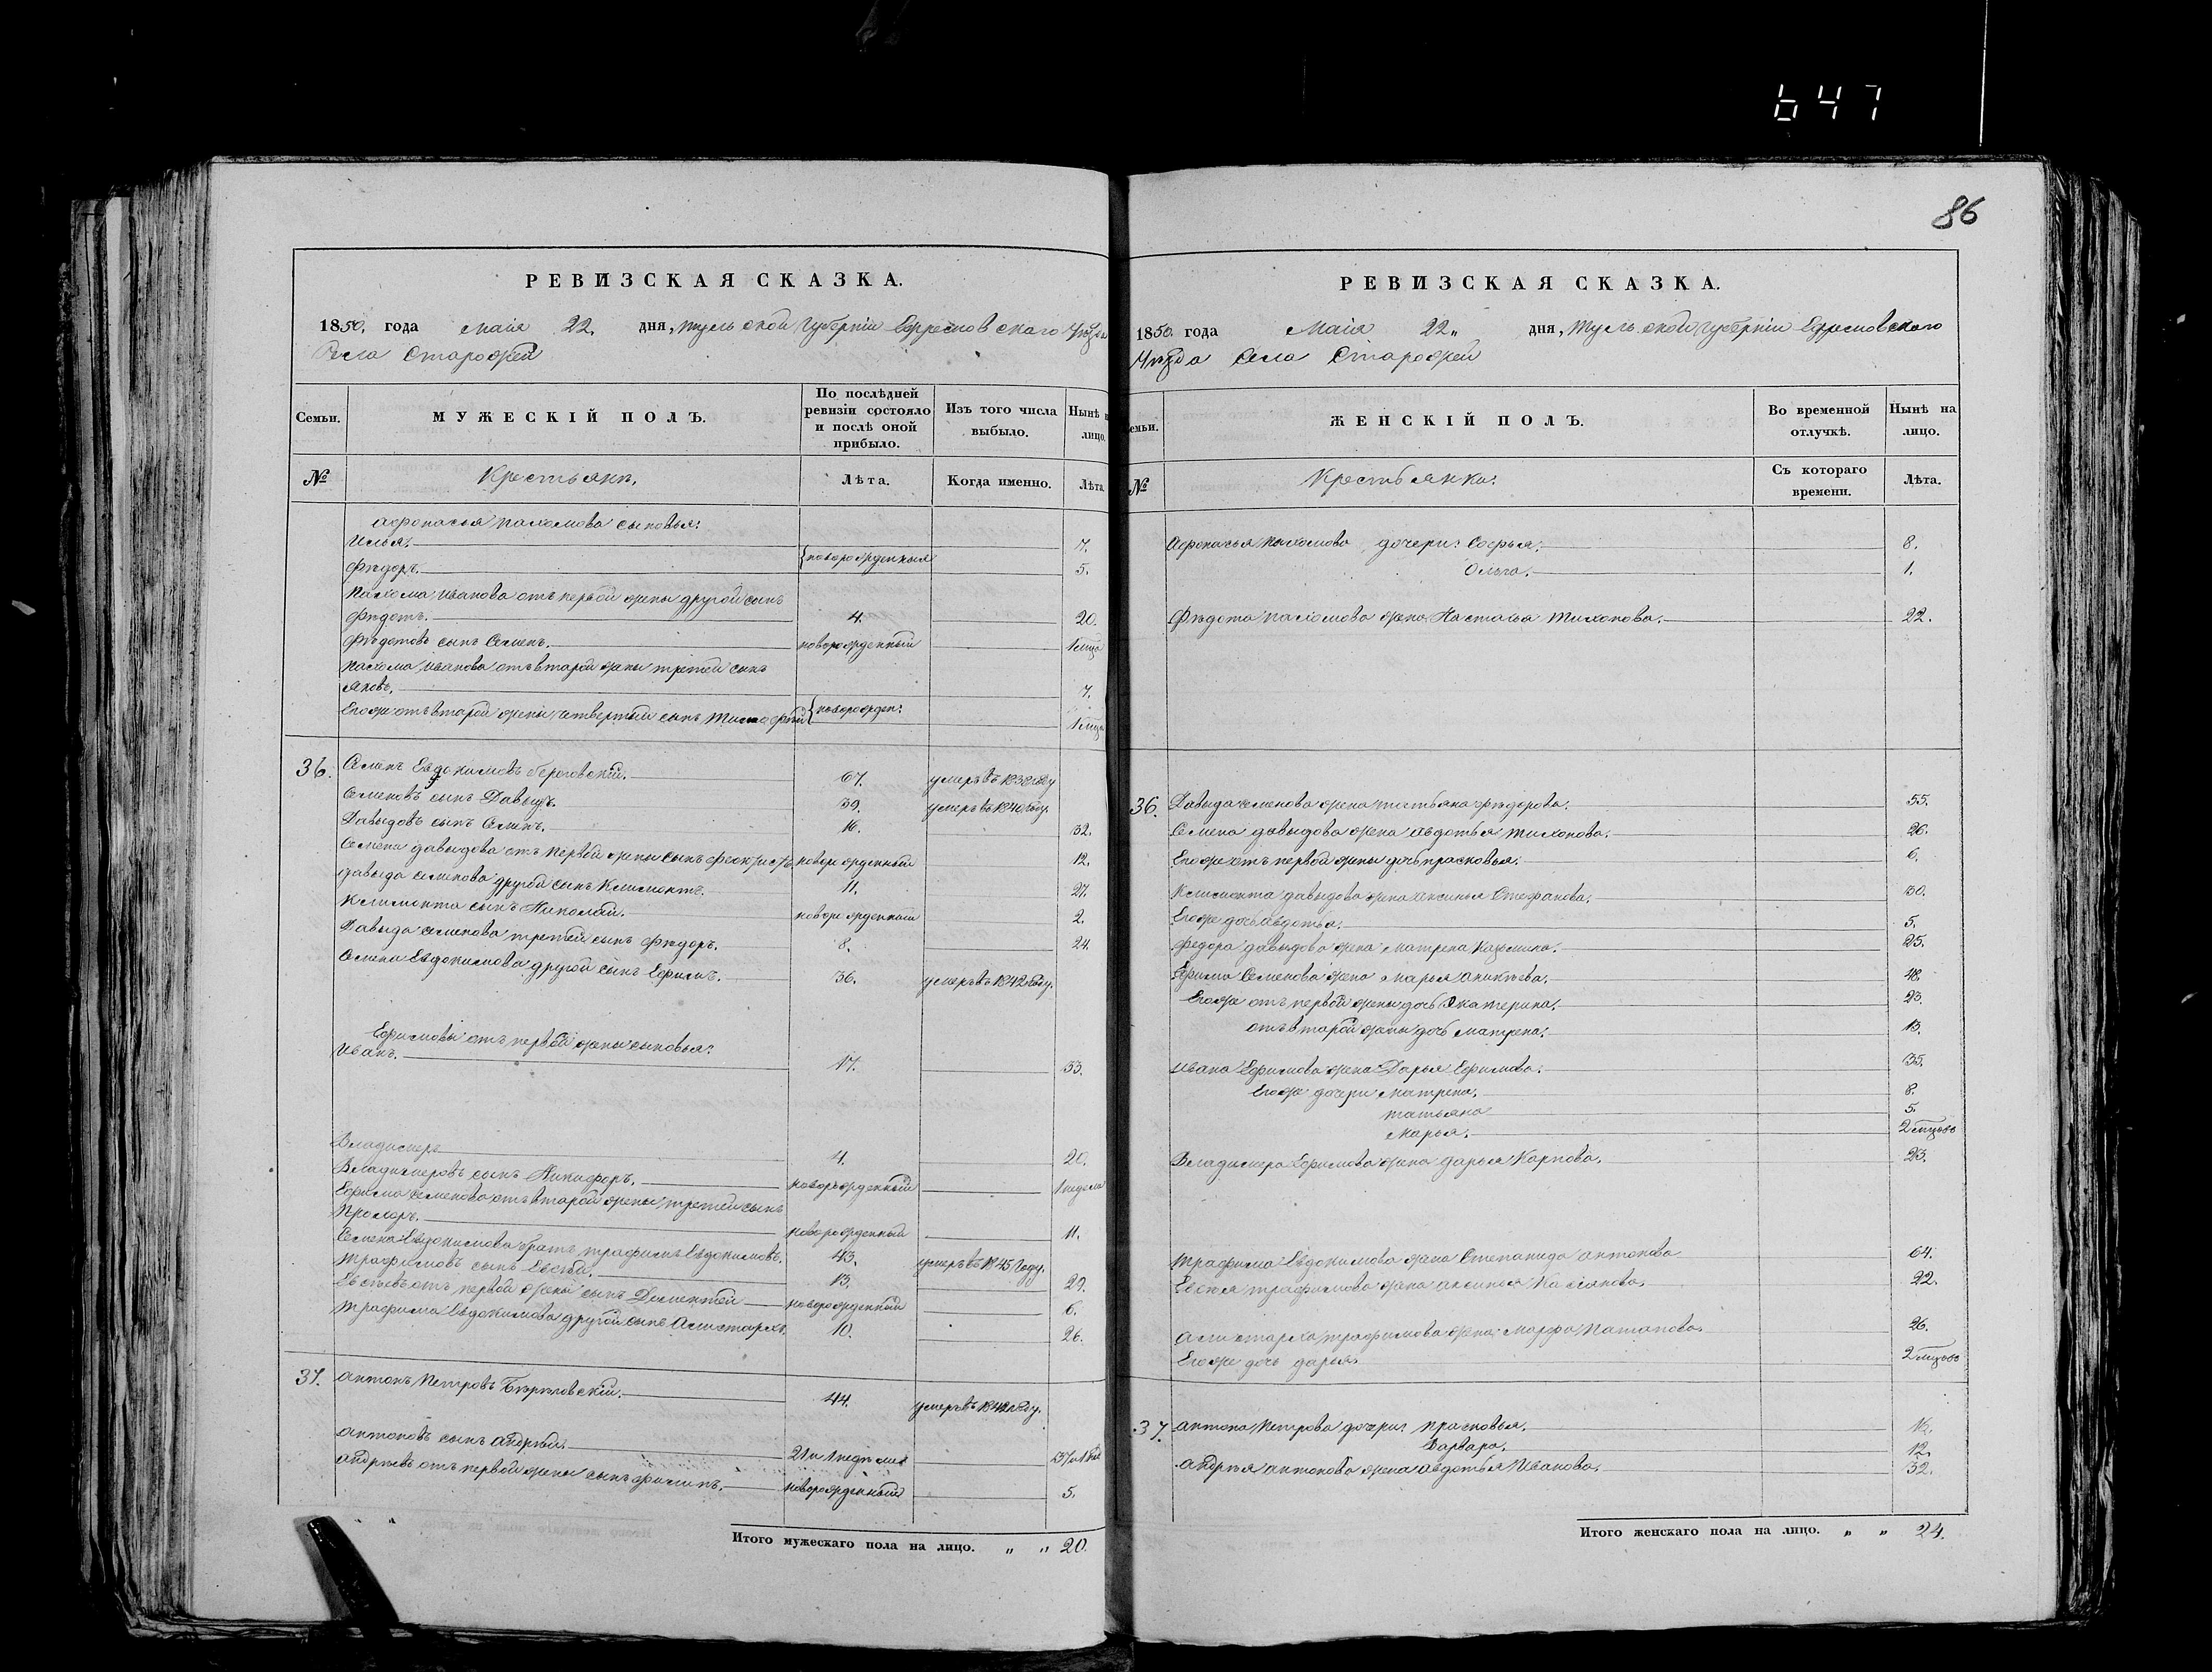 647
86
РЕВИЗСКАЯ СКАЗКА.
1850. года Маія 22. дня, Тульской Губерніи Ефремовскаго Уѣзда
Села Старожей
Семьи.
МУЖЕСКІЙ ПОЛЪ.
По послѣдней ревизіи состояло и послѣ оной прибыло.
Изъ того числа выбыло.
Нынѣ на лицо.
№
Крестьянъ.
Лѣта.
Когда именно.
Лѣта.
Афонасья Пахомова сыновья:
Илья. 7.
новорожденныя
Ѳѣдоръ. 5.
Пахома Иванова отъ первой жены другой сынъ
Ѳѣдотъ. 4. 20.
Ѳѣдотовъ сынъ Семенъ. новорожденный
Пахома Иванова отъ второй жены третей сынъ
Яковъ. 7.
Егоже отъ второй жены четвертый сынъ Тимофей новорожден:
36. Семенъ Евдокимовъ 67. умеръ въ 1838 году
Семеновъ сынъ Давыдъ. 39. умеръ въ 1840 году.
Давыдовъ сынъ Семенъ. 16. 32.
Семена Давыдова отъ первой жены сынъ Феоктистъ новорожденный 12.
Давыда Семенова другой сынъ Климонтъ. 11. 27.
Климонта сынъ Николай. новорожденный 2.
Давыда Семенова третей сынъ Ѳѣдоръ. 8. 24.
Семена Евдокимова другой сынъ Ефимъ. 36. умеръ въ 1842 году.
Ефимовы отъ первой жены сыновья:
Иванъ. 17. 33.
Владимеръ 4. 20.
Владимеровъ сынъ Никифоръ. новорожденный 1 неделя
Ефима Семенова отъ второй жены третей сынъ
новорожденный 11.
Семена Евдокимова братъ Трафимъ Евдокимовъ. 43. умеръ въ 1845 году.
Трафимовъ сынъ Евсѣй. 13. 29.
Евсѣевъ отъ первой жены сынъ Дементей новорожденный 6.
Трафима Евдокимова другой сынъ Алистархъ. 10. 26.
37. Антонъ Петровъ 44. умеръ въ году.
Антоновъ сынъ Андрѣй. 21 и 1 недѣли
Андрѣевъ отъ первой жены сынъ Филипъ. новорожденный 5.
Итого мужескаго пола на лицо. „ „ 20.
РЕВИЗСКАЯ СКАЗКА.
1850. года Маія 22„ дня, Тульской Губерніи Ефремовскаго
Уѣзда Села Старожей
Семьи.
ЖЕНСКІЙ ПОЛЪ.
Во временной отлучкѣ.
Нынѣ на лицо.
№
Крестьянки:
Съ котораго времени.
Лѣта.
Афонасья Пахомова дочери: Софья. 8.
Ольга. 1.
Ѳѣдота Пахомова жена Настасья Тихонова. 22.
36. Давыда Семенова жена Татьяна Ѳѣдорова. 55.
Семена Давыдова жена Авдотья Тихонова. 26.
Егоже отъ первой жены дочь Прасковья. 6.
Климонта Давыдова жена Аксинья Стефанова. 30.
Егоже дочь Авдотья. 5.
Федора Давыдова жена Матрена Казьмина. 25.
Ефима Семенова жена Марья Аникѣева. 48.
Егоже отъ первой жены дочь Екатерина. 23.
отъ второй жены дочь Матрена. 13.
Ивана Ефимова жена Дарья Ефимова. 35.
Егоже дочери Матрена. 8.
Татьяна 5.
Марья. 2 мцовъ
Владимера Ефимова жена Дарья Карпова. 23.
Трафима Евдокимова жена Степанида Антонова 64.
Евсѣя Трафимова жена Аксинья Касіянова. 22.
Алистарха Трафимова жена Марфа Патапова. 26.
Егоже дочь Дарья. 2 мцовъ
37. Антона Петрова дочери: Прасковья. 16.
Варвара. 12.
Андрѣя Антонова жена Авдотья Иванова. 32.
Итого женскаго пола на лицо. „ „ 24.